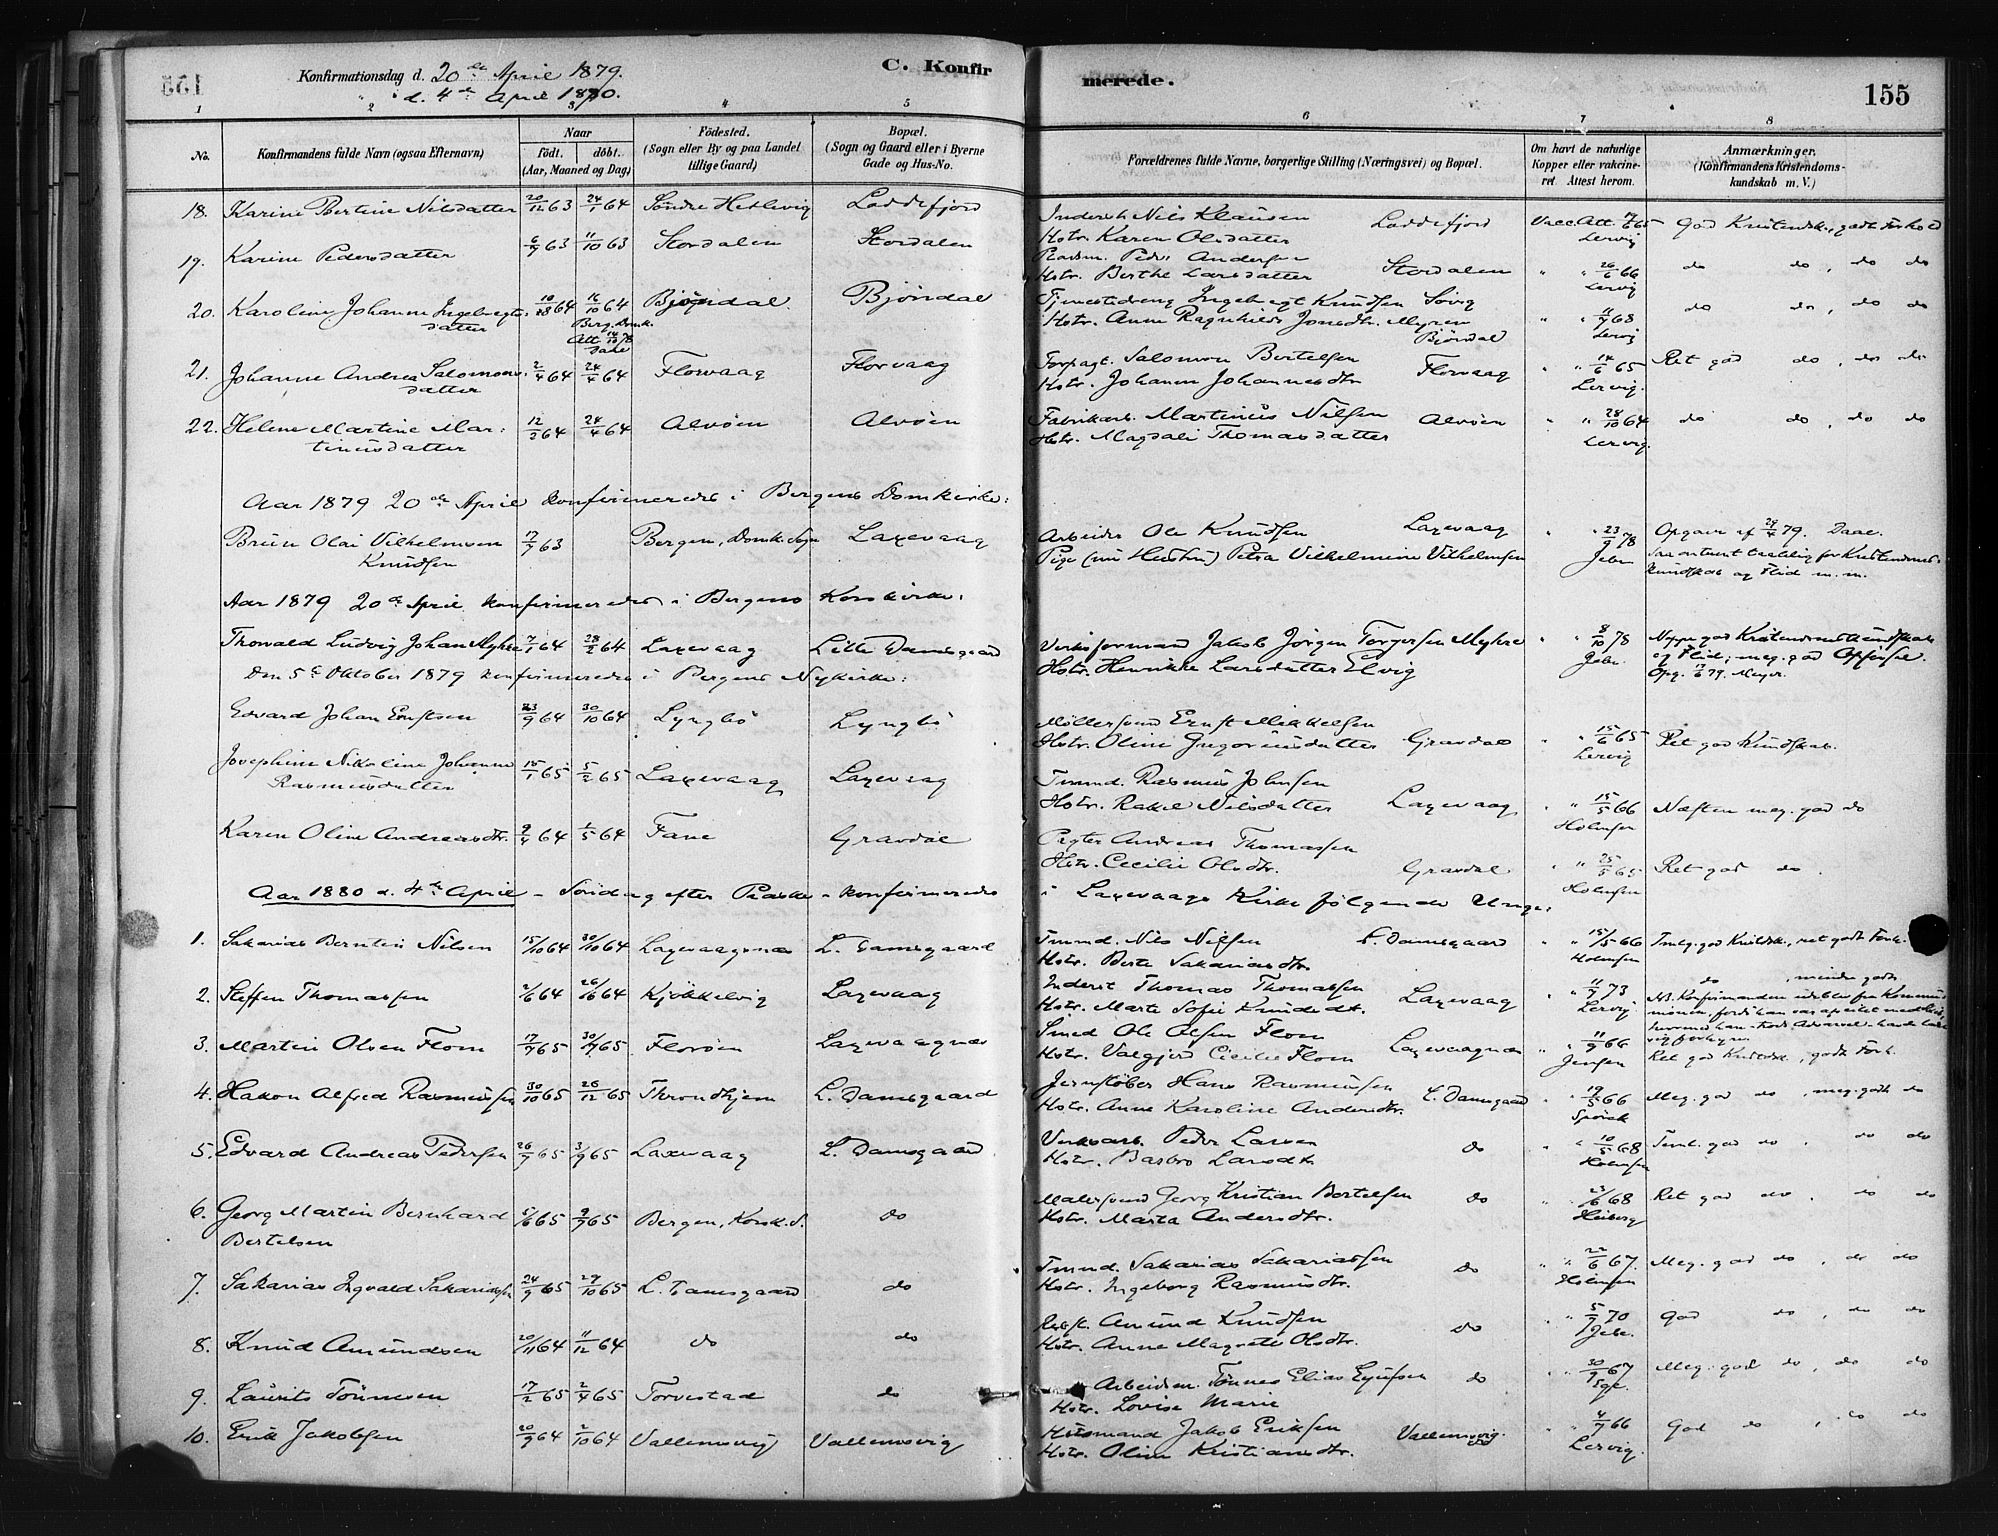 Konfirmationsdag d. 20de April 1879.
" d. 4de April 1880.
C. Konfirmerede.
155
1 2 3 4 5 6 7 8
No.
Konfirmandens fulde Navn (ogsaa Efternavn)
Naar
født. døbt.
(Aar, Maaned og Dag)
Fødested.
(Sogn eller By og paa Landet
tillige Gaard)
Bopæl.
(Sogn og Gaard eller i Byerne
Gade og Hus-No.
Forældrenes fulde Navne, borgerlige Stilling (Næringsvei) og Bopæl.
Om havt de naturlige
Kopper eller vakcineret
Attest herom.
Anmærkninger,
(Konfirmandens Kristendomskundskab
m. V.)
18. Karine Bertine Nilsdatter 20/12 63 24/1 64 Søndre Loddefjord Nils Klausen Loddefjord
Hstr. Karen Olsdatter Lervig
19. Karine Pedersdatter 6/9 63 11/10 63 Stordalen Stordalen Peder Andersen
Hstr. Berthe Larsdatter Stordalen " " 26/6 66 do do, do do
Lervig
20. Karoline Johanne Ingebregtsdatter 16/10 64 Bjørndal Bjørndal Tjenestedreng Ingebregt Knudsen
Hstr. Anne Ragnhilde Jonsdtr. Myren " " do do, do do
Bjørndal Lervig
21. Johanne Andrea Salomonsdatter 2/4 64 24/4 64 Florvaag Florvaag Forpagt. Salomon Bertelsen
Hstr. Johanne Johannesdtr Florvaag " " 14/6 65 Ret god do, do do
Lervig.
22. Helene Martine Martinusdatter 12/2 64 24/4 64 Alvøen Alvøen Fabrikarb. Martinus Nilsen Alvøen " " 28/10 64 do do, do do
Hstr. Magdali Thomasdatter Lervig.
Aar 1879 20de April konfirmeredes i Bergens Domkirke:
Brun Olai Vilhelmsen Knudsen 17/7 63 Bergen, Domk. Sogn Laxevaag Arbeider Ole Knudsen Laxevaag " 23/9 78 Opgave af 24/4 79. Daae.
Pige (nu Hustru) Petra Vilhelmine Vilhelmsen
Aar 1879 20de April konfirmeredes i Bergens Korskirke:
Thorvald Ludvig Johan Myhre 7/1 64 28/2 64 Laxevaag Lille Damsgaard Verksformand Jakob Jørgen Torgersen Myhre " " 8/10 78
Hstr. Henrikke Larsdatter Elvig og Flid; meg. god Opførsel.
Den 5te Oktober 1879 konfirmeredes i Bergens Nykirke: Opg. 79. Meyer.
Edvard Johan Ernstsen 23/9 64 30/10 64 Lyngbø Lyngbø Møllersvend Ernst Mikkelsen
Hstr. Oline Gregoriusdatter Gravdal " " 15/6 65 Ret god Kundskab.
Lervig
Josephine Nikoline Johanne Rasmusdatter 15/1 65 5/2 65 Laxevaag Laxevaag Tmmd. Rasmus Johnsen
Hstr. Rakel Nilsdatter Laxevaag " " 15/5 66 Næsten meg. god do
Holmsen
Karen Oline Andreasdtr. 9/4 64 1/5 64 Fane Gravdal Pagter Andreas Thomassen
Hstr. Cecilie Olsdtr. Gravdal " " 25/5 65 Ret god do.
Holmsen
Aar 1880 d. 4de April - Søndag efter Paaske - konfirmeredes i Laxevaags Kirke følgende Unge:
1. Sakarias Berntin Nilsen 15/10 64 30/10 64 Laxevaagsnæs L. Damsgaard Tmmd. Nils Nilsen L. Damsgaard " " 15/5 66
Hstr. Berte Sakariasdtr. Holmsen
2. Steffen Thomassen 2/6 64 26/6 64 Kjøkkelvig Laxevaag Inderst Thomas Thomassen Laxevaag " 11/9 73 do, mindre godt
Hstr. Marte Sofie Knudsdt. Lervig
3. Martin Olsen Flom 17/7 65 30/7 65 Florøen Laxevaagnæs Smed Ole Olsen Flom Laxevaagnæs " 11/9 66
Hstr. Valgjer Cecilie Flom Jensen Ret god Kristdsk., godt Forh.
4. Hakon Alfred Rasmussen 30/10 65 26/12 65 Throndhjem L. Damsgaard Jernstøber Hans Rasmussen L. Damsgaard " 19/5 66 Meg. god do, meg. godt do
Hstr. Anne Karoline Andersdtr.
5. Edvard Andreas Pedersen 26/7 65 3/9 65 Laxevaag L. Damsgaard Verksarb. Peder Larsen do " 10/5 68 Teml. god do, do do
Hstr. Barbro Larsdtr Holmsen
6. Georg Martin Bernhard Bertelsen 5/6 65 9/7 65 Bergen, Korsk. S. do Malersvend Georg Kristian Bertelsen do " 23/6 68 Ret god do, do do
Hstr. Marta Andersdtr. Heiberg
7. Sakarias Ingvald Sakariassen 24/9 65 29/10 65 L. Damsgaard do Tmmd. Sakarias Sakariassen do " 22/6 67. Meg. god do, do do
Hstr. Ingeborg Rasmusdtr. Holmsen
8. Knud Amundsen 20/11 64 11/12 64 do do Amund Knudsen do " 5/7 70 God do, do do
Hstr. Anne Magrete Olsdtr. Jebe.
9. Laurits Tønnesen 17/2 65 2/4 65 Torvestad do Arbeidsm. Tønnes Elias do " 30/9 67 Meg. god do, do do
Hstr. Lovise Marie
10. Erik Jakobsen 20/9 64 2/10 64 Vallemsvig Vallemsvig Husmand Jakob Eriksen Vallemsvig. " 4/7 66 God do, do do
Hstr. Oline Kristiansdtr. Lervig.